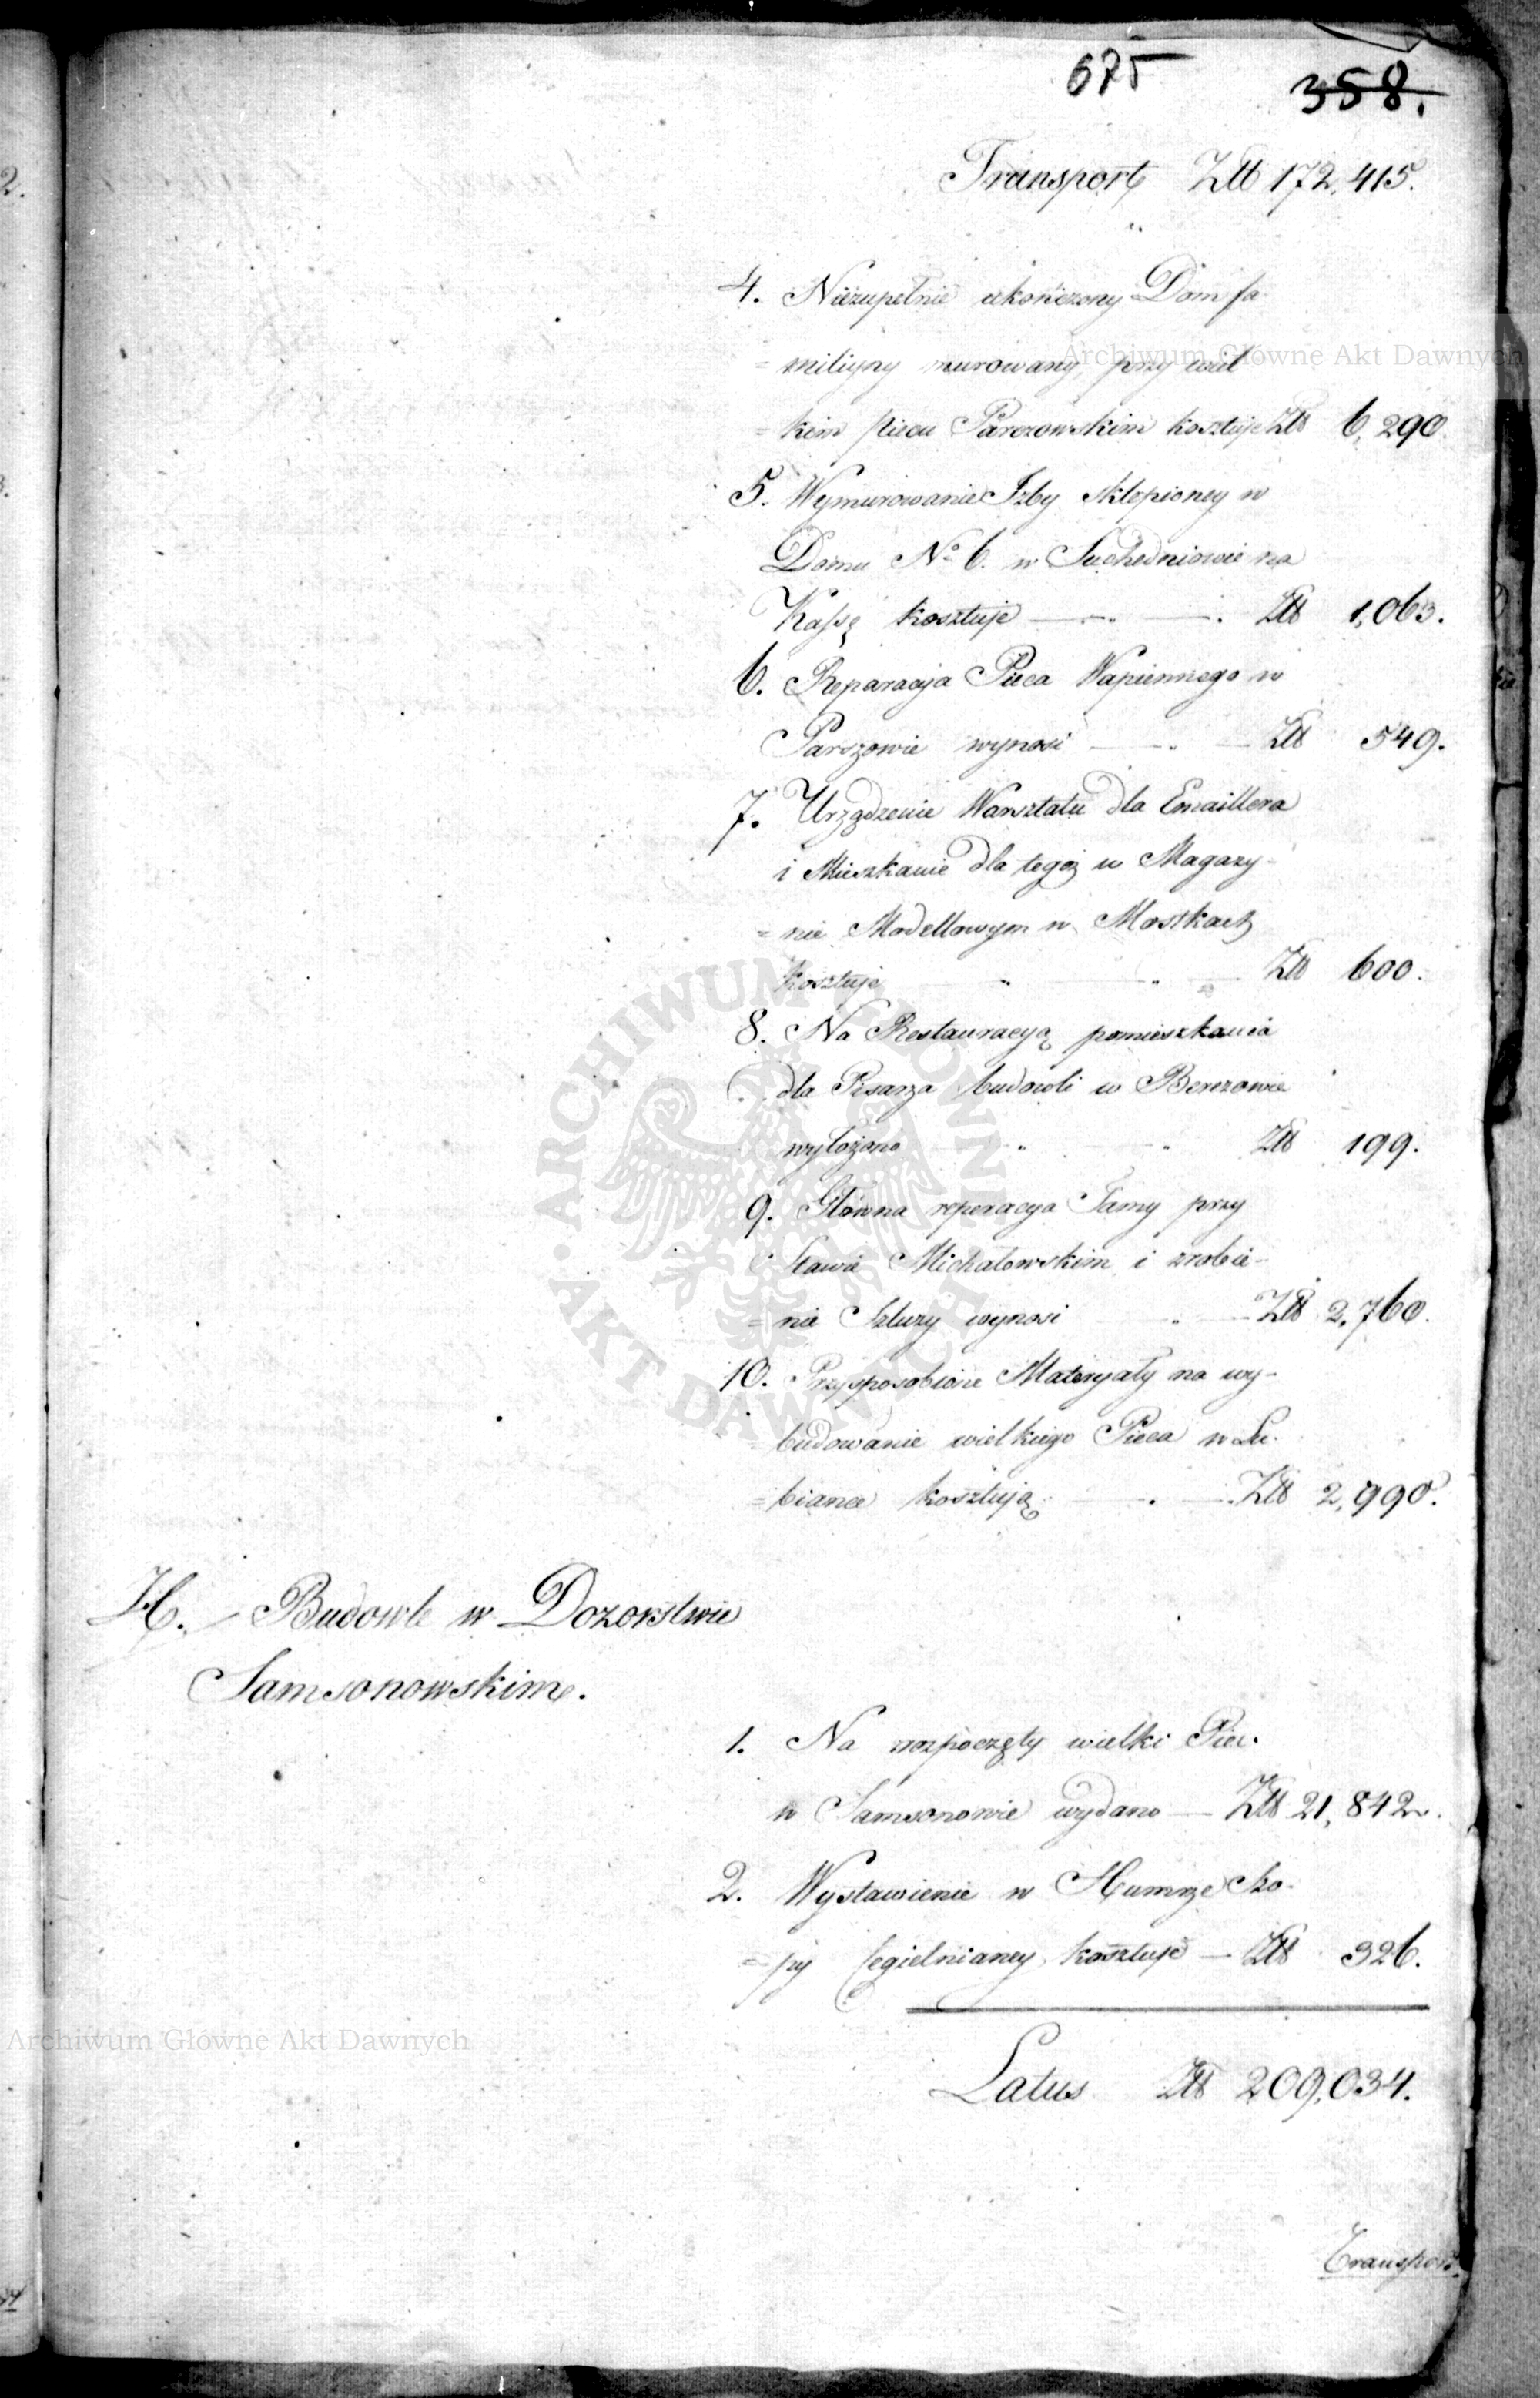 675
358.
Transport Ztt 172,415.
4. Niezupełnie ukończony Dom fa-
= miliyny murowany, przy wiel
= kim piecu Parszowskim kosztuje Ztt 6,290.
5. Wymurowanie Izby sklepioney w
Domu No 6. w Suchedniowie na
Kassę kosztuje Ztt 1,063.
6. Reparacya Pieca Wapiennego w
Parszowie wynosi Ztt 549.
7. Urządzenie Warsztatu dla Emaillera
i Mieszkanie dla tegoż w Magazy-
= nie Modellowym w Mostkach
kosztuje Ztt 600.
8. Na Restauracyą pomieszkania
dla Pisarza budowli w Berezowie
wyłożono Ztt 199.
9. Główna reperacya Tamy przy
Stawie Michałowskim i zrobie-
= nie Szluzy wynosi Ztt 2,760.
10. Przysposobione Materyały na wy-
budowanie wielkiego Pieca w Lu-
= biance kosztują Ztt 2,990.
H. Budowle w Dozorstwie
Samsonowskim.
1. Na rozpoczęty wielki Piec
w Samsonowie wydano Ztt 21,842.
2. Wystawienie w Humrze Szo-
= py Cegielnianey kosztuje Ztt 326.
Latus Ztt 209,034.
Transport
Archiwum Główne Akt Dawnych
Archiwum Główne Akt Dawnych
ARCHIWUM GŁÓWNE AKT DAWNYCH